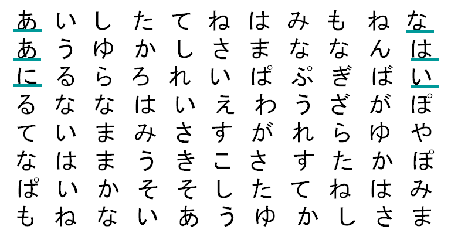 あいしたてねはみもねな
あうゆかしさまななんは
にるらろれいぱぷぎばい
るななはいえわうざがぽ
ていまみさすがれらゆや
なはまうきこさすたかぽ
ぱいかそそしたてねはみ
もねないあうゆかしさま